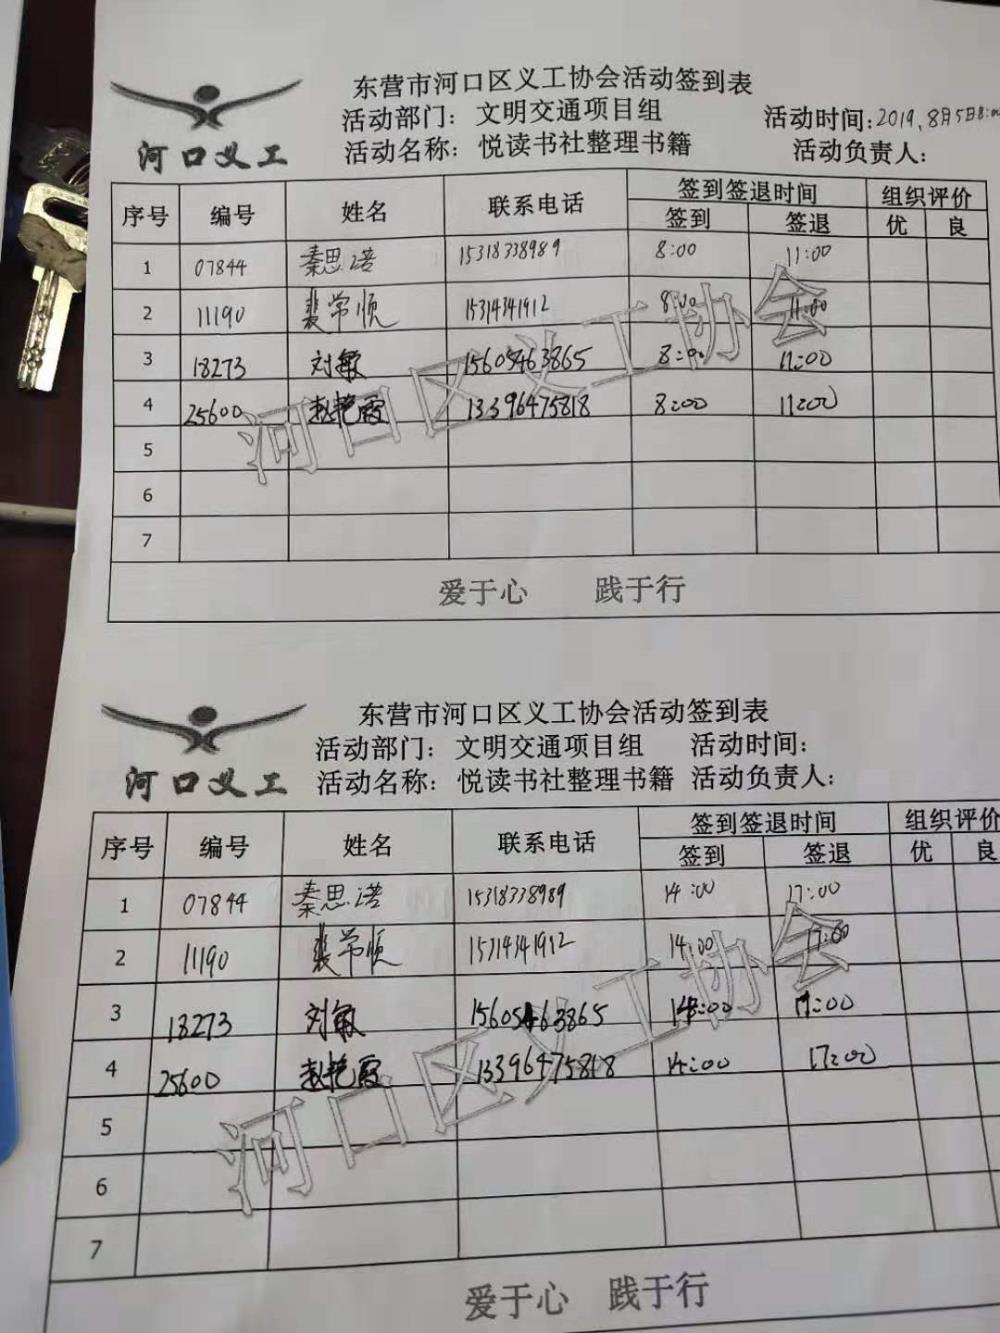 东营市河口区义工协会活动签到表
活动部门：文明交通项目组 活动时间：2019.8月5日8:00
河口义工 活动名称：悦读书社整理书籍 活动负责人：
序号 编号 姓名 联系电话 签到签退时间 组织评价
签到 签退 优 良
1 07844 秦思诺 15318338989 8:00 11:00
2 11190 裴常顺 15314341912 8:00 11:00
3 18273 刘敏 15605463865 8:00 11:00
4 25600 赵艳霞 13396475818 8:00 11:00
5
6
7
河口区义工协会
爱于心 践于行
东营市河口区义工协会活动签到表
活动部门：文明交通项目组 活动时间：
河口义工 活动名称：悦读书社整理书籍 活动负责人：
序号 编号 姓名 联系电话 签到签退时间 组织评价
签到 签退 优 良
1 07844 秦思诺 15318338989 14:00 17:00
2 11190 裴常顺 15314341912 14:00 17:00
3 18273 刘敏 15605463865 14:00 17:00
4 25600 赵艳霞 13396475818 14:00 17:00
5
6
7
河口区义工协会
爱于心 践于行